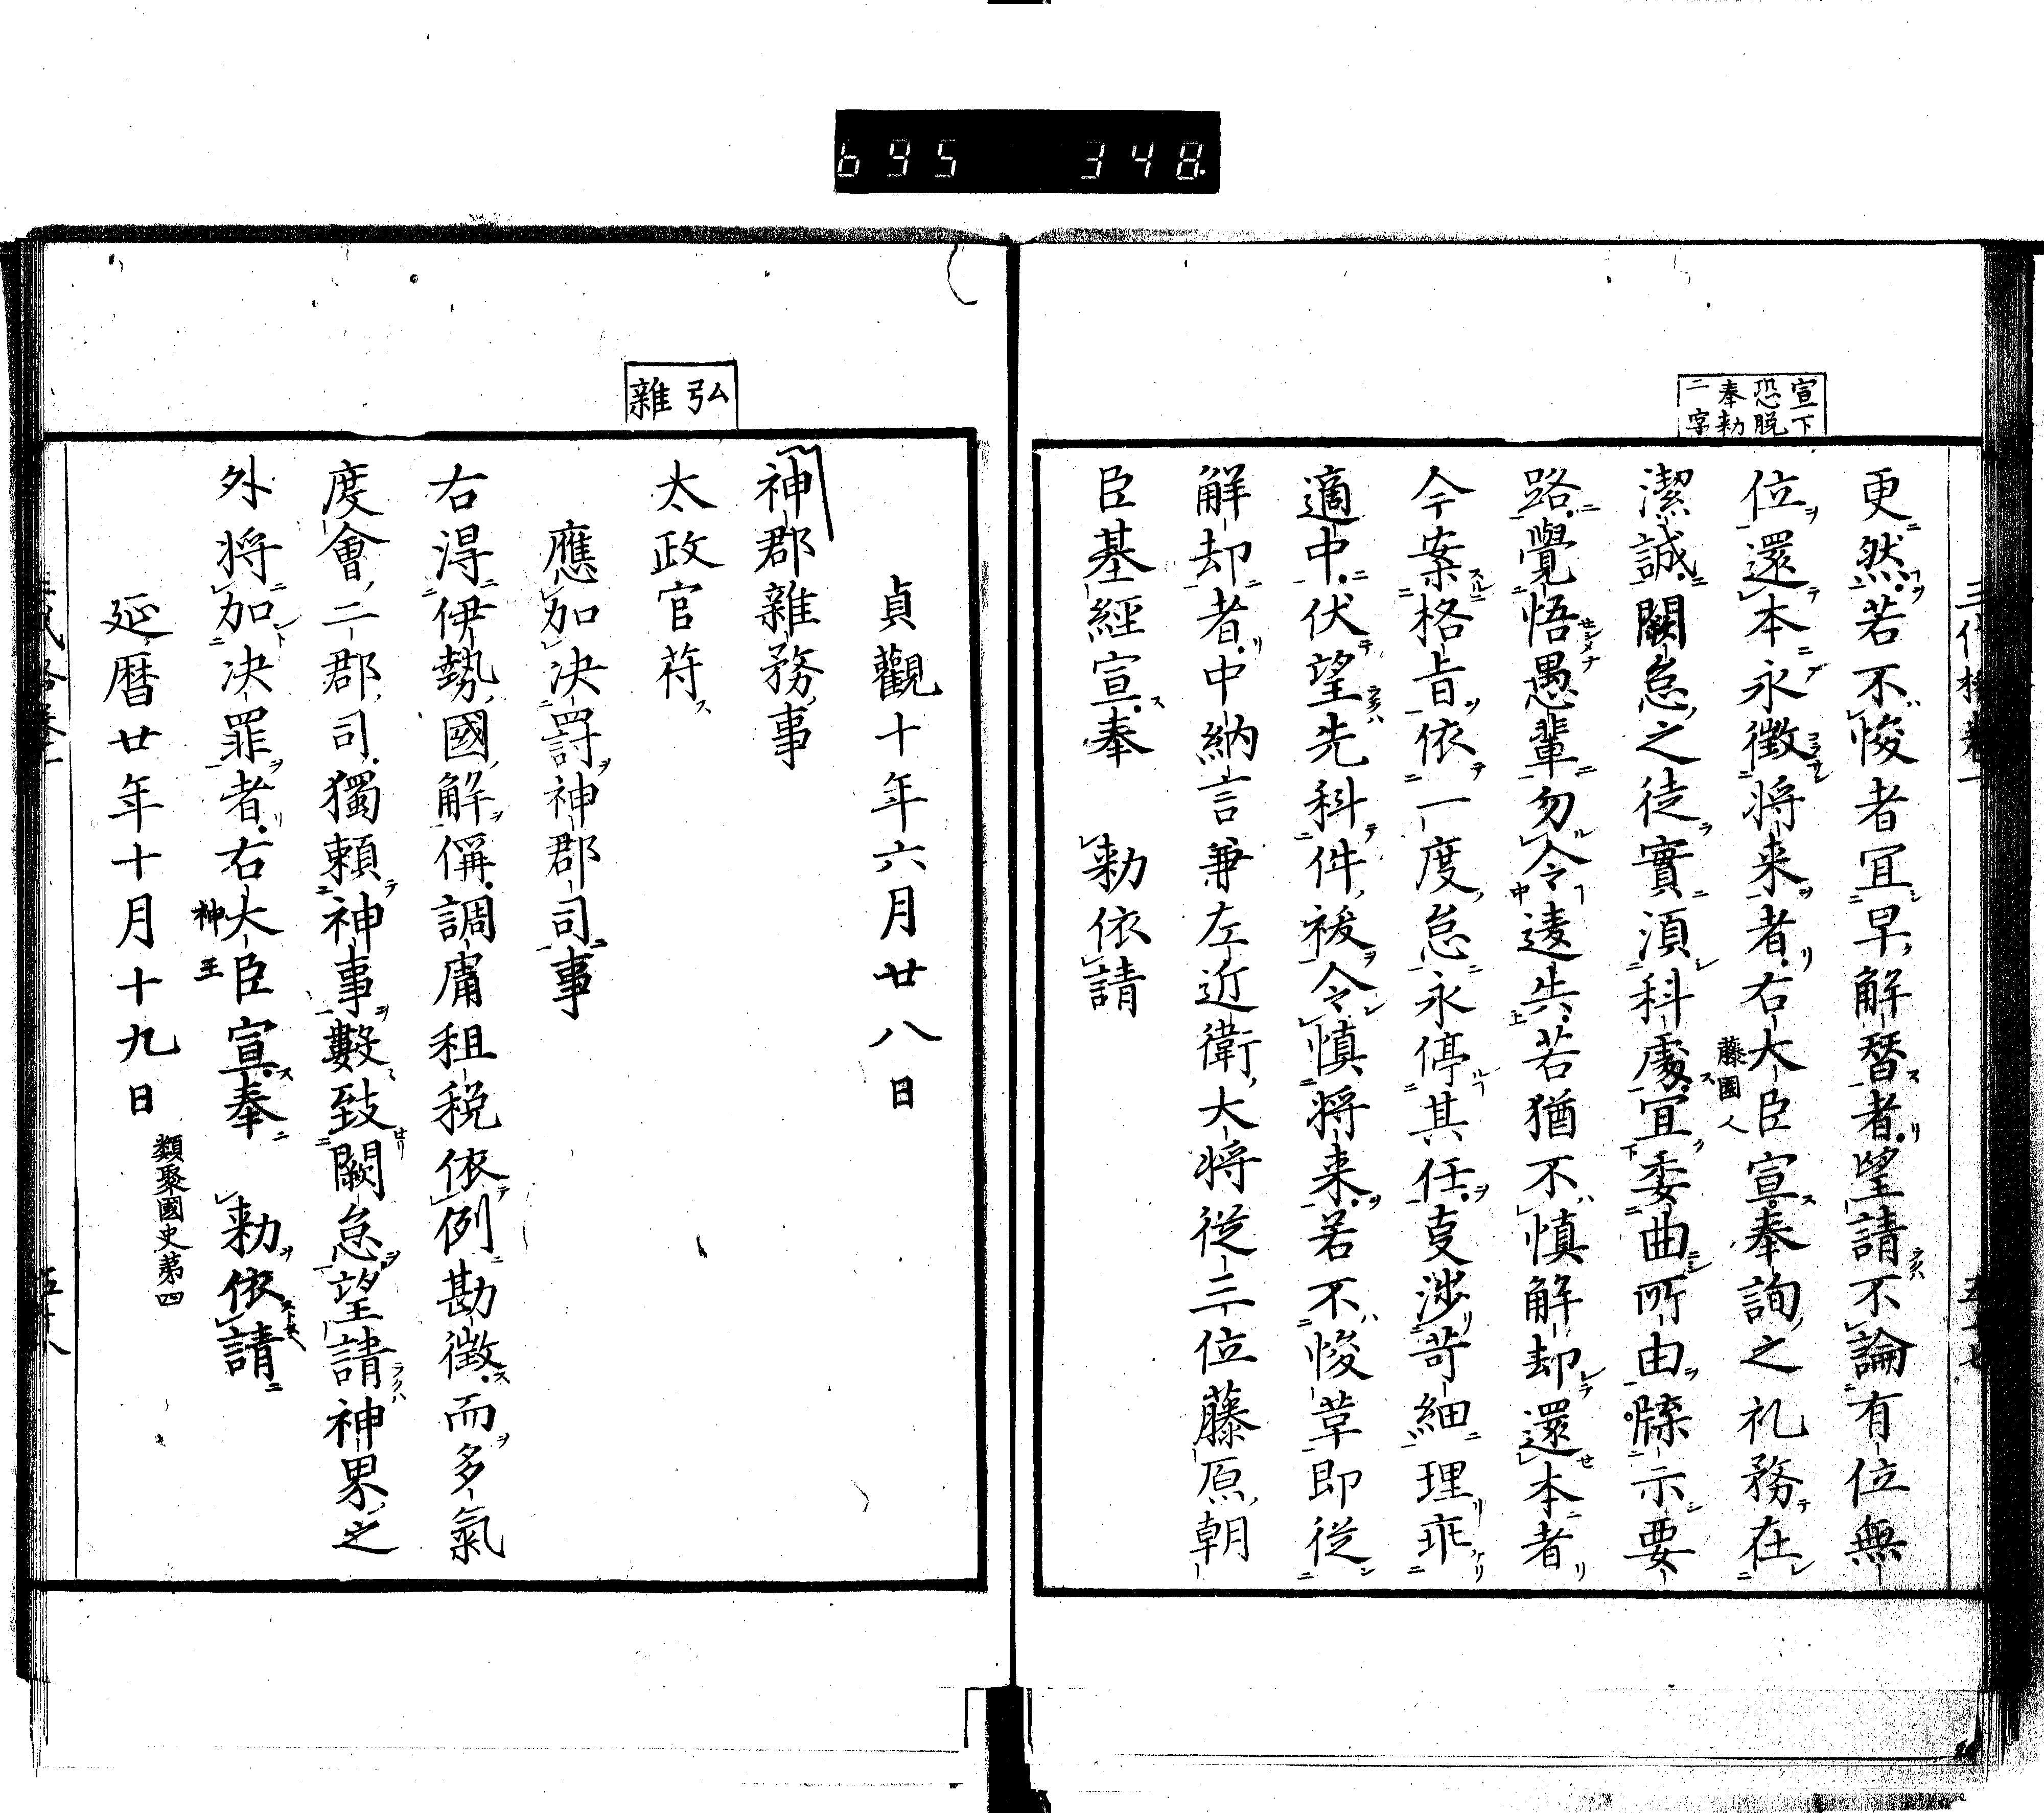 695 348
宣下
恐脱
奉勅
二字
更然若不悛者宜早解替者望請不論有位無
位還本永徴将来者右大臣宣奉詢之礼務在
藤園人
潔誠闕怠之徒實湏科處宜委曲所由牒示要
路覺悟愚輩勿令違失若猶不慎解却還本者
今案格旨依一度怠永停其任叓渉苛細理乖
適中伏望先科件祓令慎将来若不悛革即従
解却者中納言兼左近衛大将従三位藤原朝
臣基經宣奉　勅依請
貞觀十年六月廿八日
弘
雜
神郡雜務事
太政官苻
應加決罰神郡司事
右淂伊勢國解偁調庸租税依例勘徴而多氣
度會二郡司獨頼神事數致闕怠望請神界之
外将加決罪者右大臣宣奉　勅依請
神王
延暦廿年十月十九日
類聚國史第四